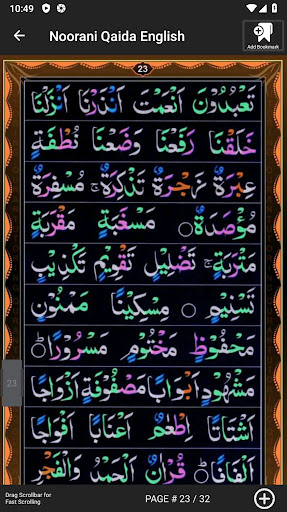 10:49
Noorani Qaida English
Add Bookmark
23
تَعْبُدُوْنَ اَنْعَمْتَ اَنْذَرْنَا اَنْزَلْنَا
خَلَقْنَا رَفَعْنَا وَضَعْنَا نُطْفَةٍ
عِبْرَةٌ زَجْرَةٌ تَذْكِرَةٌ مُسْفِرَةٌ
مُؤْصَدَةٌ مَسْغَبَةٍ مَقْرَبَةٍ
مَتْرَبَةٍ تَضْلِيْلٍ تَقْوِيْمٍ تَكْذِيْبٍ
تَسْنِيْمٍ مِسْكِيْنًا مَمْنُوْنٍ
مَحْفُوْظٍ مَخْتُوْمٍ مَسْرُوْرًا
مَشْهُوْدٍ اَبْوَابًا مَصْفُوْفَةٍ اَزْوَاجًا
اَشْتَاتًا اِطْعٰمٌ اَعْنَابًا اَفْوَاجًا
اَلْفَافًا قُرْاٰنٌ اَلْحَمْدُ وَالْفَجْرِ
23
Drag Scrollbar for
Fast Scrolling
PAGE # 23 / 32